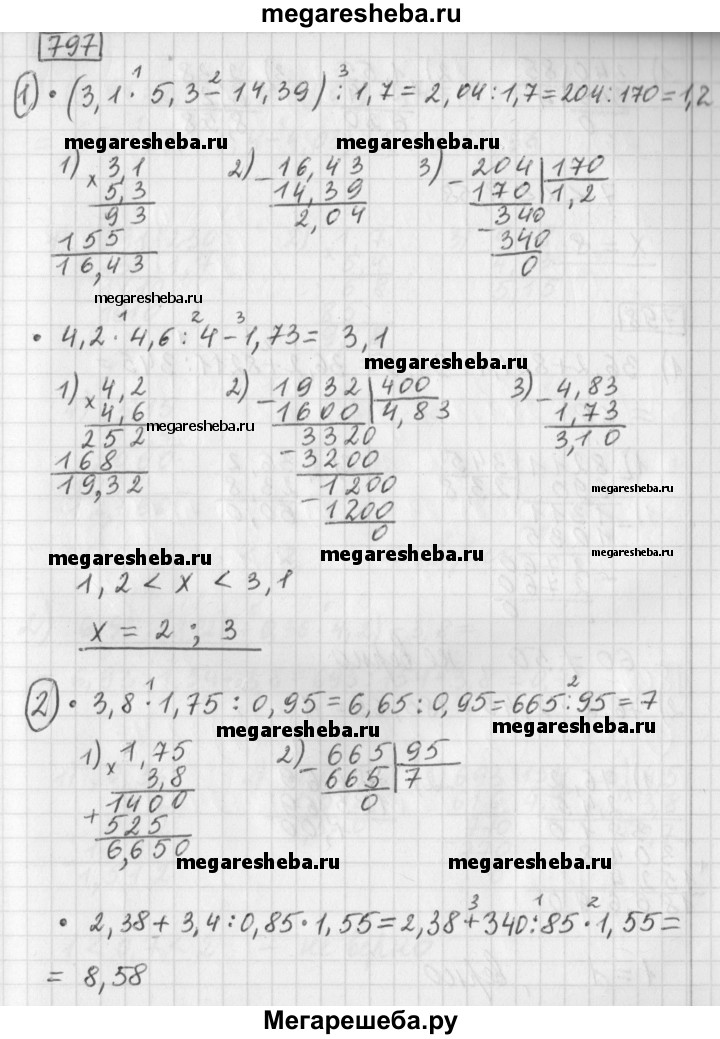 megaresheba.ru
797
1) • (3,1 · 5,3 – 14,39) : 1,7 = 2,04 : 1,7 = 204 : 170 = 1,2
1 2 3
megaresheba.ru megaresheba.ru megaresheba.ru
1) × 3,1 2) – 16,43 3) – 204 | 170
5,3 14,39 170 | 1,2
93 2,04 340
155 – 340
16,43 0
megaresheba.ru
• 4,2 · 4,6 : 4 – 1,73 = 3,1
1 2 3
megaresheba.ru
1) × 4,2 2) – 1932 | 400 3) – 4,83
4,6 1600 | 4,83 1,73
252 3320 3,10
megaresheba.ru
168 – 3200
19,32 – 1200
1200
0
megaresheba.ru
megaresheba.ru megaresheba.ru megaresheba.ru
1,2 < x < 3,1
x = 2 ; 3
2) • 3,8 · 1,75 : 0,95 = 6,65 : 0,95 = 665 : 95 = 7
1 2
megaresheba.ru megaresheba.ru
1) × 1,75 2) – 665 | 95
3,8 665 | 7
1400 0
+ 525
6,650
megaresheba.ru megaresheba.ru
• 2,38 + 3,4 : 0,85 · 1,55 = 2,38 + 340 : 85 · 1,55 =
3 1 2
= 8,58
Мегарешеба.ру